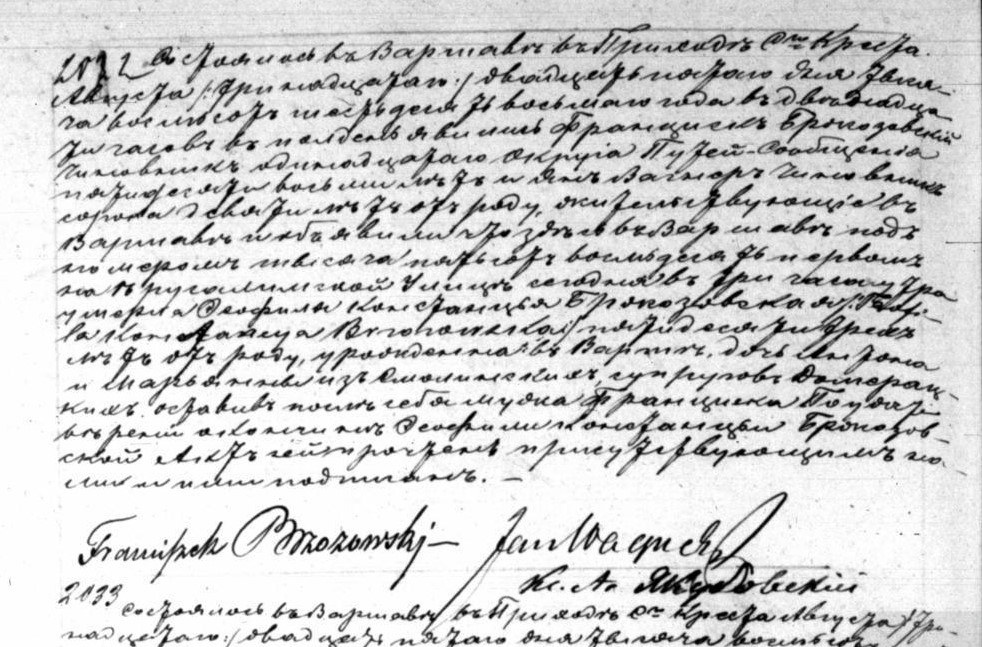 2032 Состоялось въ Варшавѣ въ Приходѣ Сто Креста.
Августа /:тринадцатаго:/ двадцать пятаго дня тыся-
ча восемьсотъ шестьдесятъ восьмаго года въ двѣнадца-
ти часовъ въ полдень явились Францискъ Бржозовскій
Чиновникъ одинадцатаго Округа Путей-Сообщенія
пятидесяти восьми лѣтъ и Янъ Вагнеръ Чиновникъ
сорока девяти лѣтъ отъ роду, жительствующіе въ
Варшавѣ и объявили что здѣсь въ Варшавѣ подъ
номеромъ тысяча пятьсотъ восемьдесятъ первымъ
на Іерусалимской Улицѣ сегодня въ три часа утра
умерла Θеофиля Констанцья Бржозовская /:Teofi-
la Konstancya Brzozowska:/ пятидесяти трехъ
лѣтъ отъ роду, урожденна въ Варш. дочь Антона
и Марьянны изъ Смолинскихъ, супруговъ Домерац-
кихъ. оставивъ послѣ себя мужа Франциска По удосто-
вѣреніи о кончинѣ Θеофили Констанцьи Бржозов-
ской Актъ сей прочтенъ присутствующимъ на-
ми и ими подписанъ. —
Franciszek Brzozowski — Jan Wagner
Кс. Ад. Якубовскій
2033
Состоялось въ Варшавѣ въ Приходѣ Сто Креста Августа /:три-
надцатаго:/ двадцать пятаго дня тысяча восемьсотъ